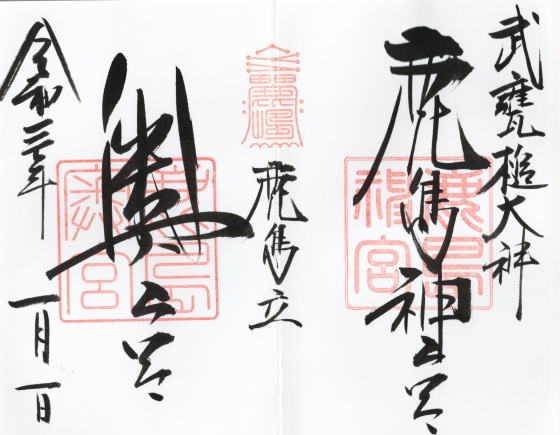 武甕槌大神
鹿島神宮
鹿島神宮
鹿島立
奥宮
鹿島奥宮
令和三年
一月一日